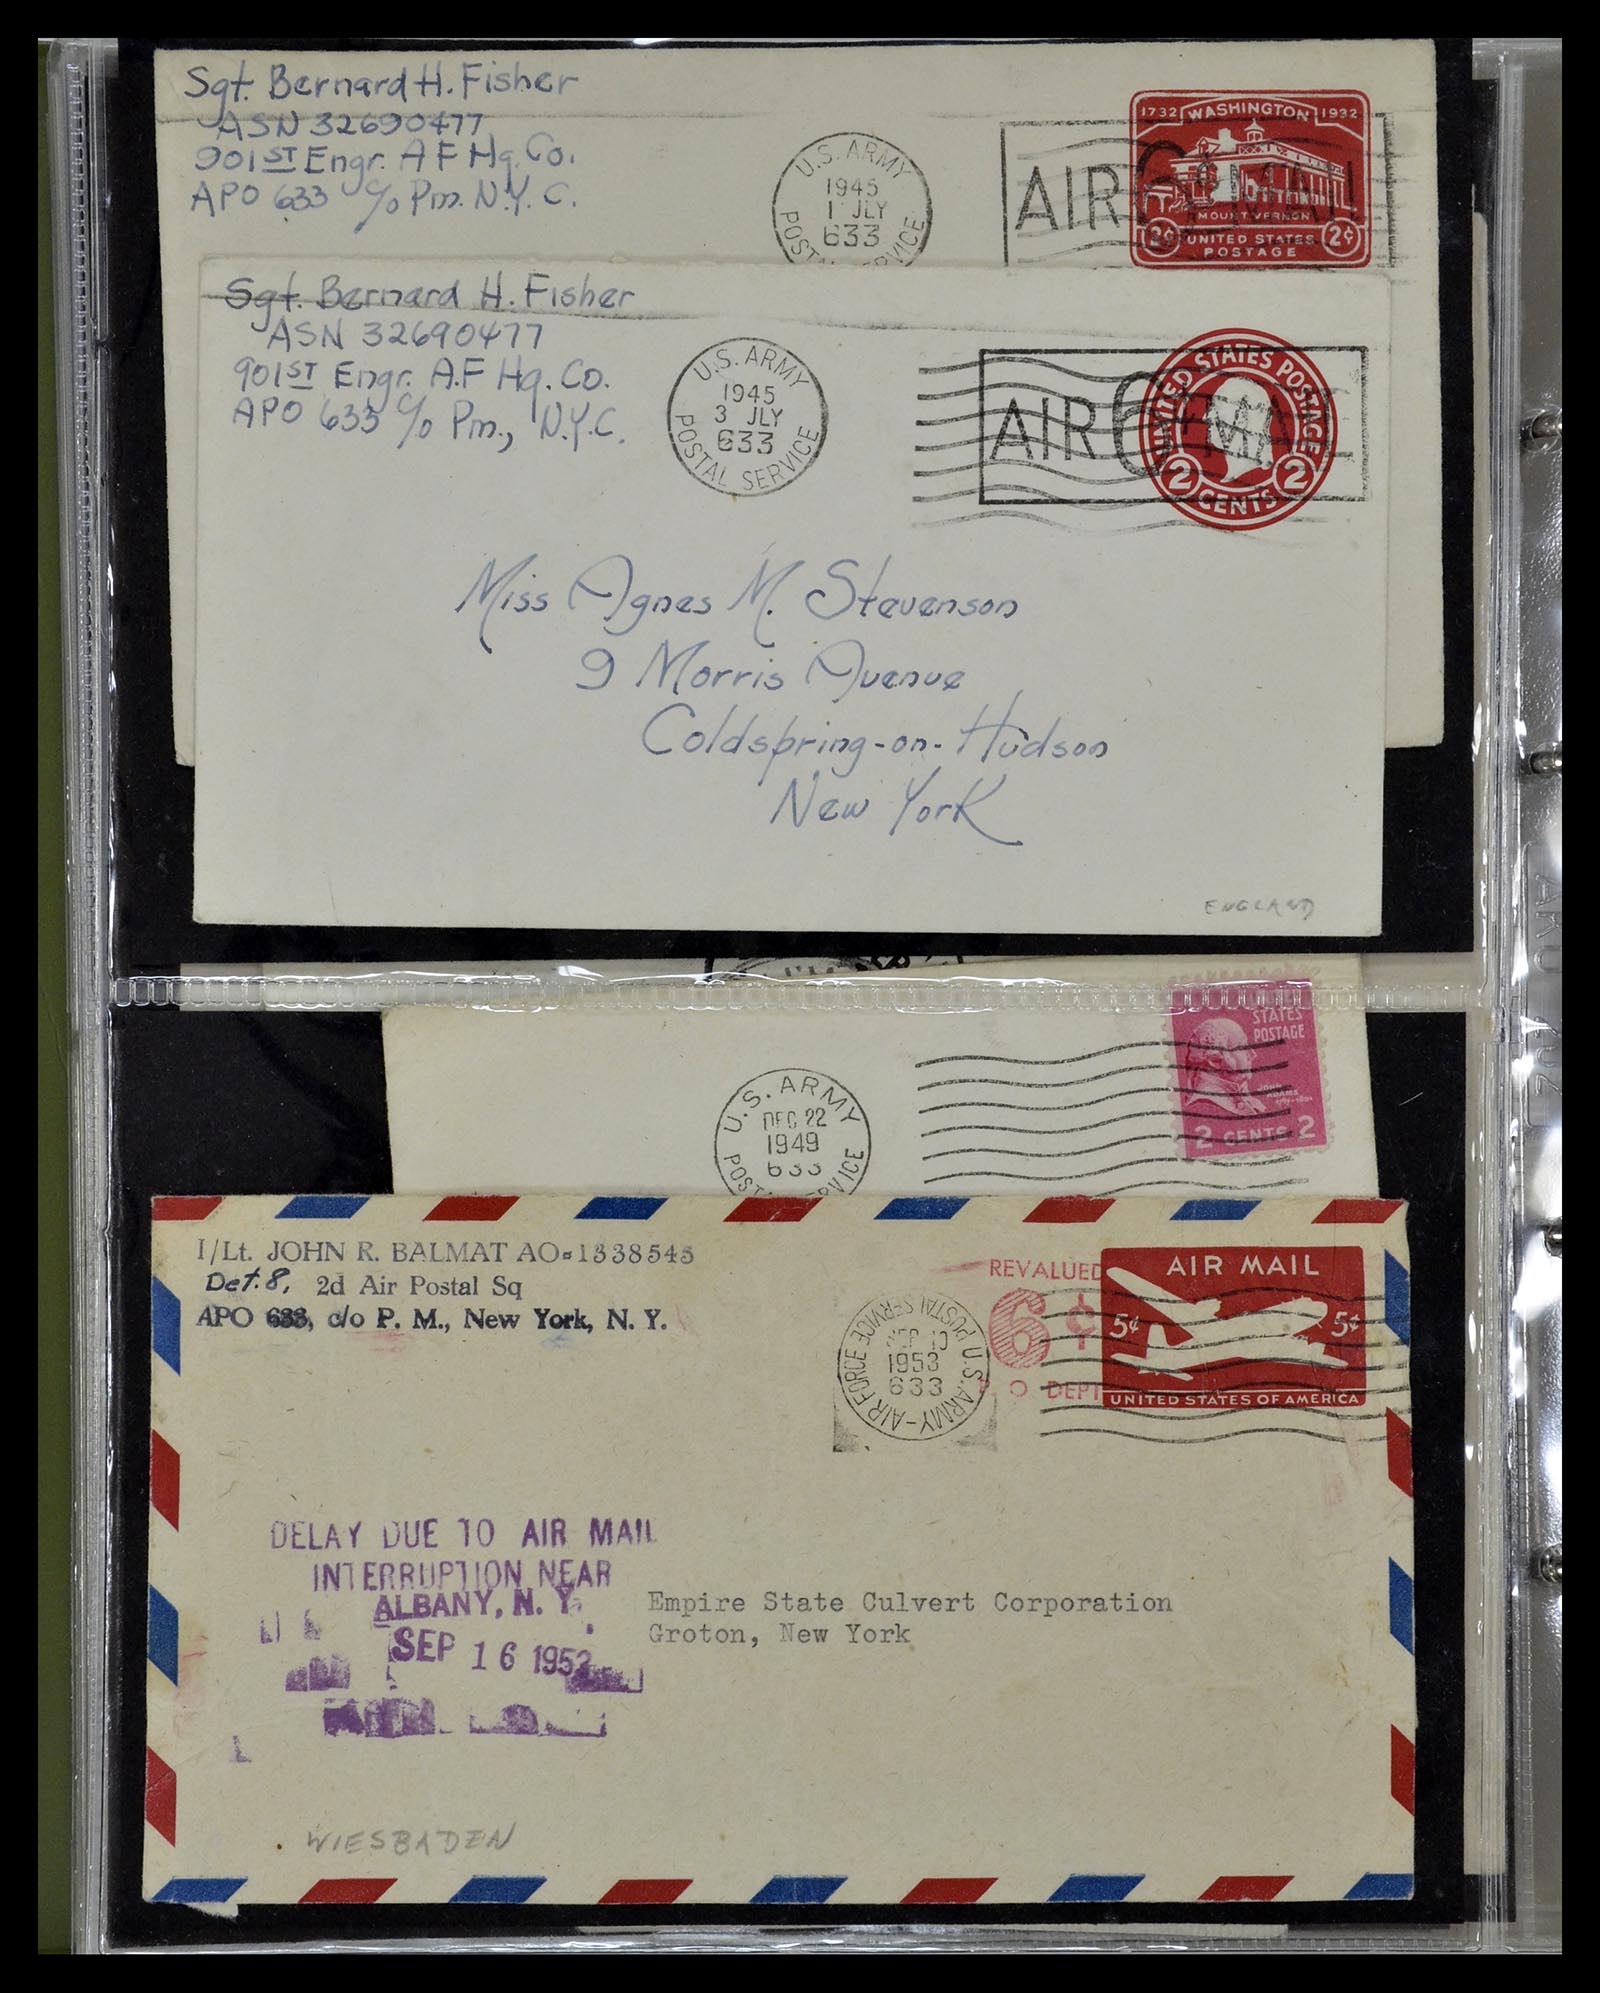 Sgt. Bernard H. Fisher
ASN 32690477
901ST Engr. A F Hq. Co.
APO 633 c/o Pm. N.Y.C.
U.S. ARMY
1945
1 JLY
633
AIR 6¢ MAIL
1732 WASHINGTON 1932
MOUNT VERNON
2¢ UNITED STATES 2¢
POSTAGE
Sgt. Bernard H. Fisher
ASN 32690477
901ST Engr. A.F Hq. Co.
APO 633 c/o Pm., N.Y.C.
U.S. ARMY
1945
3 JLY
633
POSTAL SERVICE
AIR 6¢ MAI
UNITED STATES POSTAGE
2 CENTS 2
Miss Agnes M. Stevenson
9 Morris Avenue
Coldspring-on-Hudson
New York
ENGLAND
STATES
POSTAGE
JOHN
ADAMS
2 CENTS 2
U.S. ARMY
DEC 22
1949
633
1/Lt. JOHN R. BALMAT AO=1338545
Det. 8, 2d Air Postal Sq
APO 633, c/o P. M., New York, N. Y.
REVALUED
6¢
P. O. DEPT
AIR MAIL
5¢ 5¢
UNITED STATES OF AMERICA
U.S. ARMY-AIR FORCE POSTAL SERVICE
1953
633
DELAY DUE TO AIR MAIL
INTERRUPTION NEAR
ALBANY, N. Y.
SEP 16 1953
Empire State Culvert Corporation
Groton, New York
WIESBADEN